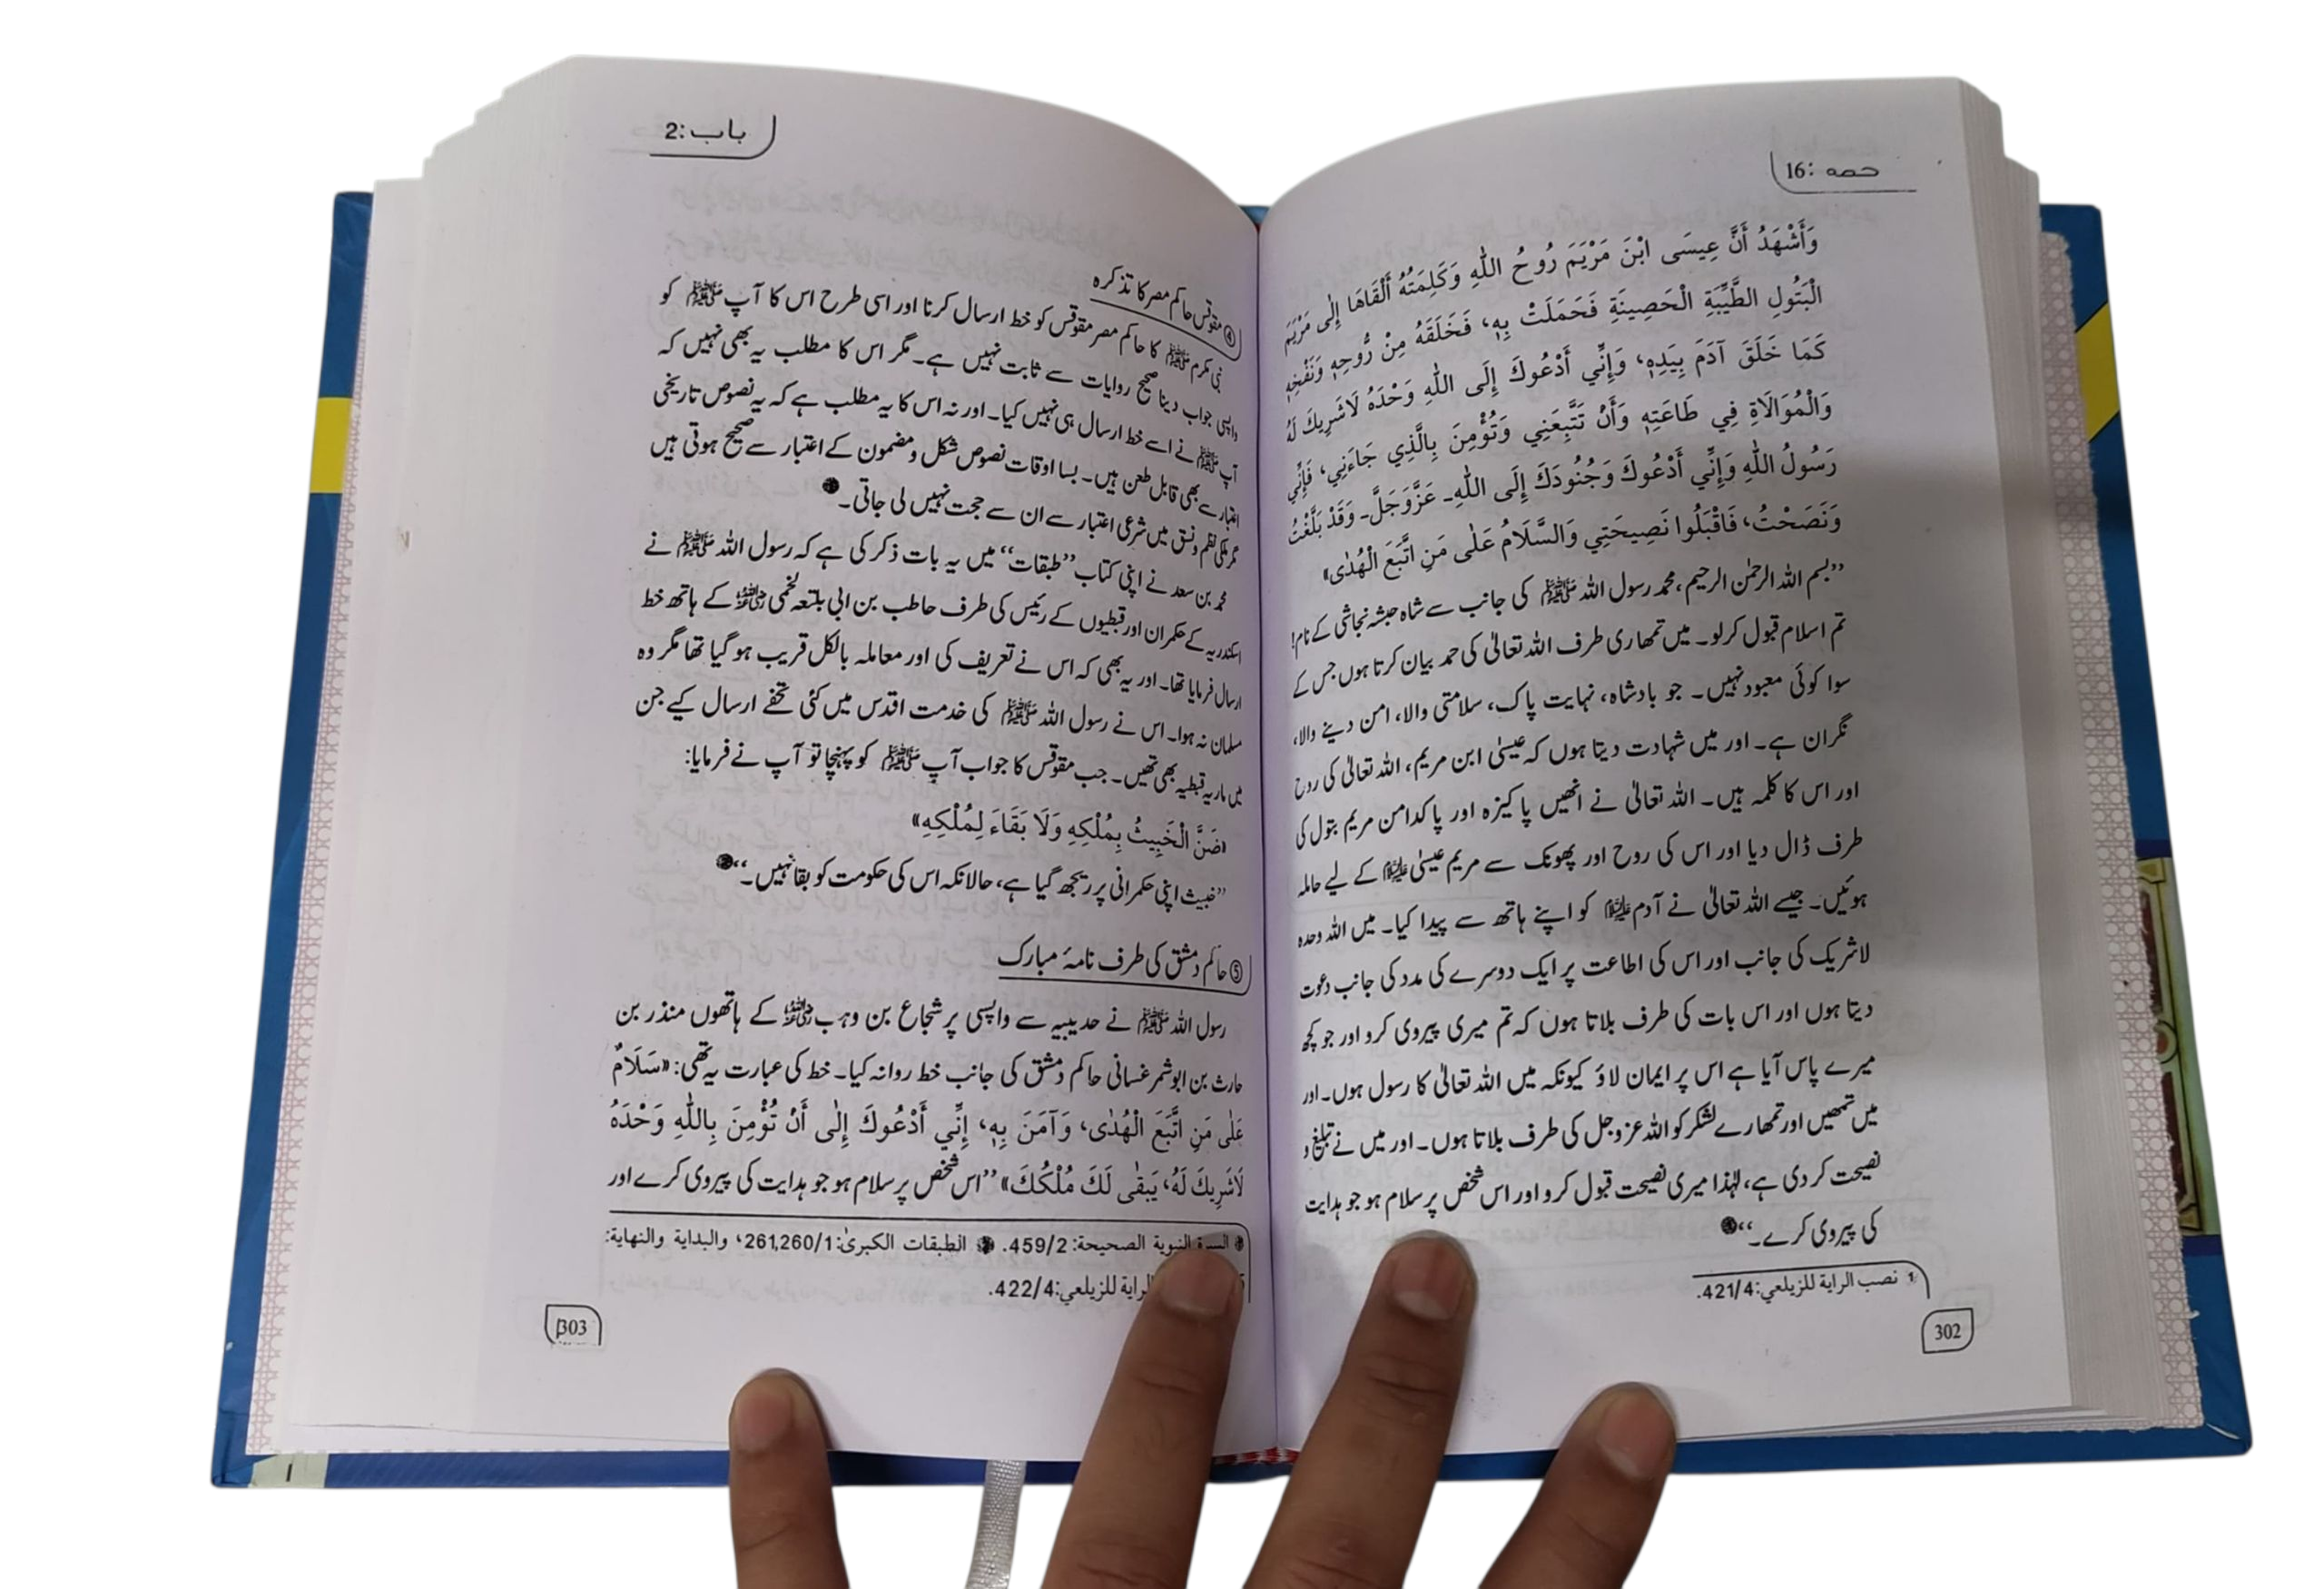 حصہ :16
وَأَشْهَدُ أَنَّ عِيسَى ابْنَ مَرْيَمَ رُوحُ اللّٰهِ وَكَلِمَتُهُ أَلْقَاهَا إِلٰى مَرْيَمَ
الْبَتُولِ الطَّيِّبَةِ الْحَصِينَةِ فَحَمَلَتْ بِهٖ، فَخَلَقَهُ مِنْ رُّوحِهٖ وَنَفْخِهٖ
كَمَا خَلَقَ آدَمَ بِيَدِهٖ، وَإِنِّي أَدْعُوكَ إِلَى اللّٰهِ وَحْدَهُ لَاشَرِيكَ لَهُ
وَالْمُوَالَاةِ فِي طَاعَتِهٖ وَأَنْ تَتَّبِعَنِي وَتُؤْمِنَ بِالَّذِي جَاءَنِي، فَإِنِّي
رَسُولُ اللّٰهِ وَإِنِّي أَدْعُوكَ وَجُنُودَكَ إِلَى اللّٰهِ۔ عَزَّوَجَلَّ۔ وَقَدْ بَلَّغْتُ
وَنَصَحْتُ، فَاقْبَلُوا نَصِيحَتِي وَالسَّلَامُ عَلٰى مَنِ اتَّبَعَ الْهُدٰى»
’’بسم اللہ الرحمٰن الرحیم، محمد رسول اللہ ﷺ کی جانب سے شاہ حبشہ نجاشی کے نام!
تم اسلام قبول کرلو۔ میں تمھاری طرف اللہ تعالیٰ کی حمد بیان کرتا ہوں جس کے
سوا کوئی معبود نہیں۔ جو بادشاہ، نہایت پاک، سلامتی والا، امن دینے والا،
نگران ہے۔ اور میں شہادت دیتا ہوں کہ عیسیٰ ابن مریم، اللہ تعالیٰ کی روح
اور اس کا کلمہ ہیں۔ اللہ تعالیٰ نے انھیں پاکیزہ اور پاکدامن مریم بتول کی
طرف ڈال دیا اور اس کی روح اور پھونک سے مریم عیسیٰ علیہ السلام کے لیے حاملہ
ہوئیں۔ جیسے اللہ تعالیٰ نے آدم علیہ السلام کو اپنے ہاتھ سے پیدا کیا۔ میں اللہ وحدہ
لاشریک کی جانب اور اس کی اطاعت پر ایک دوسرے کی مدد کی جانب دعوت
دیتا ہوں اور اس بات کی طرف بلاتا ہوں کہ تم میری پیروی کرو اور جو کچھ
میرے پاس آیا ہے اس پر ایمان لاؤ کیونکہ میں اللہ تعالیٰ کا رسول ہوں۔ اور
میں تمھیں اور تمھارے لشکر کو اللہ عزوجل کی طرف بلاتا ہوں۔ اور میں نے تبلیغ و
نصیحت کر دی ہے، لہٰذا میری نصیحت قبول کرو اور اس شخص پر سلام ہو جو ہدایت
کی پیروی کرے۔‘‘
1 نصب الراية للزيلعي:421/4.
302
باب:2
④ مقوقس حاکم مصر کا تذکرہ
نبی مکرم ﷺ کا حاکم مصر مقوقس کو خط ارسال کرنا اور اسی طرح اس کا آپ ﷺ کو
واپسی جواب دینا صحیح روایات سے ثابت نہیں ہے۔ مگر اس کا مطلب یہ بھی نہیں کہ
آپ ﷺ نے اسے خط ارسال ہی نہیں کیا۔ اور نہ اس کا یہ مطلب ہے کہ یہ نصوص تاریخی
اعتبار سے بھی قابل طعن ہیں۔ بسا اوقات نصوص شکل و مضمون کے اعتبار سے صحیح ہوتی ہیں
مگر ملکی نظم و نسق میں شرعی اعتبار سے ان سے حجت نہیں لی جاتی۔
محمد بن سعد نے اپنی کتاب ’’طبقات‘‘ میں یہ بات ذکر کی ہے کہ رسول اللہ ﷺ نے
اسکندریہ کے حکمران اور قبطیوں کے رئیس کی طرف حاطب بن ابی بلتعہ لخمی رضی اللہ عنہ کے ہاتھ خط
ارسال فرمایا تھا۔ اور یہ بھی کہ اس نے تعریف کی اور معاملہ بالکل قریب ہو گیا تھا مگر وہ
مسلمان نہ ہوا۔ اس نے رسول اللہ ﷺ کی خدمت اقدس میں کئی تحفے ارسال کیے جن
میں ماریہ قبطیہ بھی تھیں۔ جب مقوقس کا جواب آپ ﷺ کو پہنچا تو آپ نے فرمایا:
«ضَنَّ الْخَبِيثُ بِمُلْكِهٖ وَلَا بَقَاءَ لِمُلْكِهٖ»
’’خبیث اپنی حکمرانی پر ریجھ گیا ہے، حالانکہ اس کی حکومت کو بقا نہیں۔‘‘
⑤ حاکم دمشق کی طرف نامۂ مبارک
رسول اللہ ﷺ نے حدیبیہ سے واپسی پر شجاع بن وہب رضی اللہ عنہ کے ہاتھوں منذر بن
حارث بن ابوشمر غسانی حاکم دمشق کی جانب خط روانہ کیا۔ خط کی عبارت یہ تھی: «سَلَامٌ
عَلٰى مَنِ اتَّبَعَ الْهُدٰى، وَآمَنَ بِهٖ، إِنِّي أَدْعُوكَ إِلٰى أَنْ تُؤْمِنَ بِاللّٰهِ وَحْدَهُ
لَاشَرِيكَ لَهُ، يَبقٰى لَكَ مُلْكُكَ» ’’اس شخص پر سلام ہو جو ہدایت کی پیروی کرے اور
السيرة النبوية الصحيحة: 459/2. الطبقات الكبرىٰ:261,260/1، والبداية والنهاية:
الراية للزيلعي:422/4.
303